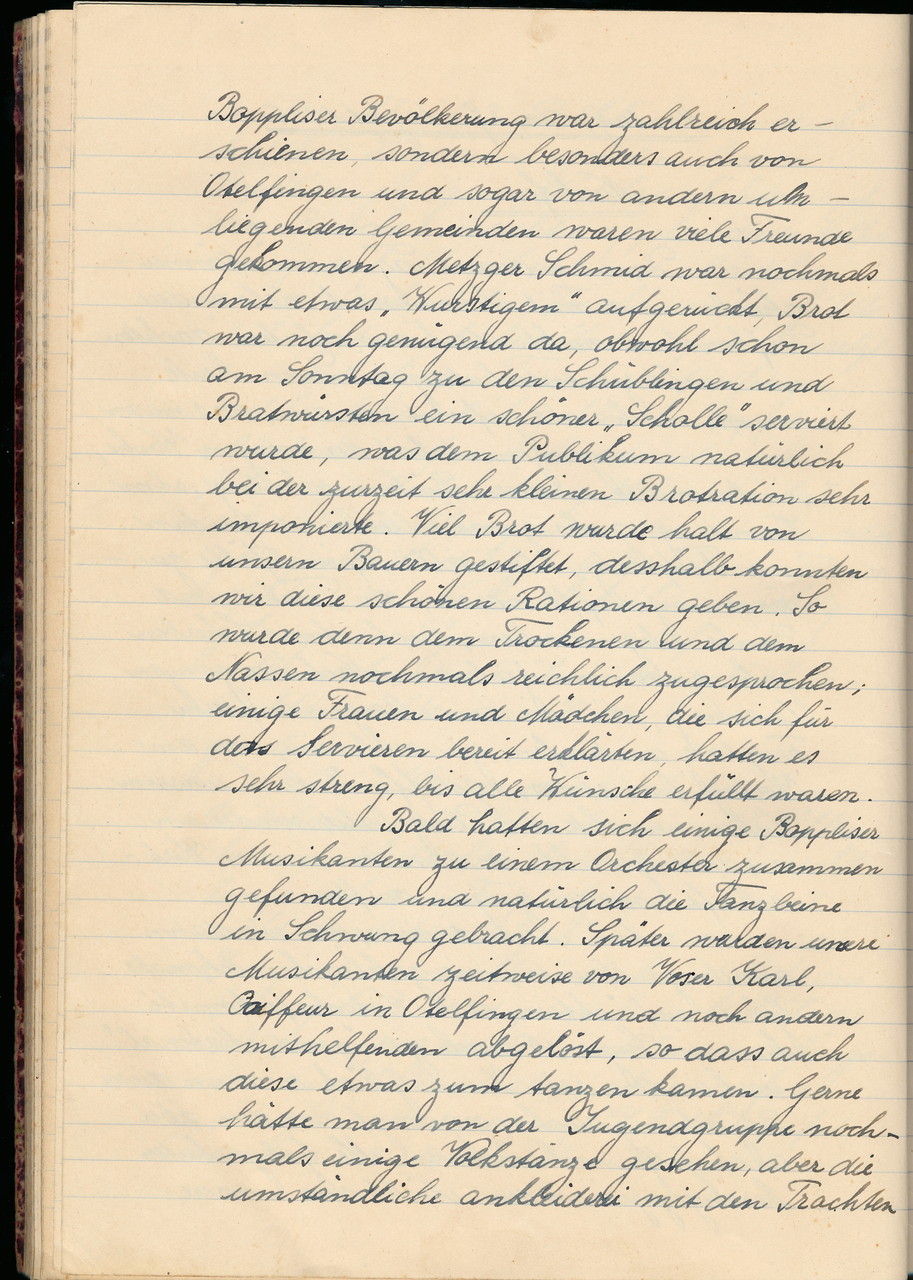 Boppliser Bevölkerung war zahlreich er-
schienen, sondern besonders auch von
Otelfingen und sogar von andern um-
liegenden Gemeinden waren viele Freunde
gekommen. Metzger Schmid war nochmals
mit etwas „Wurstigem" aufgerückt, Brot
war noch genügend da, obwohl schon
am Sonntag zu den Schüblingen und
Bratwürsten ein schöner „Scholle" serviert
wurde, was dem Publikum natürlich
bei der zurzeit sehr kleinen Brotration sehr
imponierte. Viel Brot wurde halt von
unsern Bauern gestiftet, desshalb konnten
wir diese schönen Rationen geben. So
wurde denn dem Trockenen und dem
Nassen nochmals reichlich zugesprochen;
einige Frauen und Mädchen, die sich für
das Servieren bereit erklärten, hatten es
sehr streng, bis alle Wünsche erfüllt waren.
Bald hatten sich einige Boppliser
Musikanten zu einem Orchester zusammen
gefunden und natürlich die Tanzbeine
in Schwung gebracht. Später wurden unsere
Musikanten zeitweise von Voser Karl,
Coiffeur in Otelfingen und noch andern
mithelfenden abgelöst, so dass auch
diese etwas zum tanzen kamen. Gerne
hätte man von der Jugendgruppe noch-
mals einige Volkstänze gesehen, aber die
umständliche ankleiderei mit den Trachten